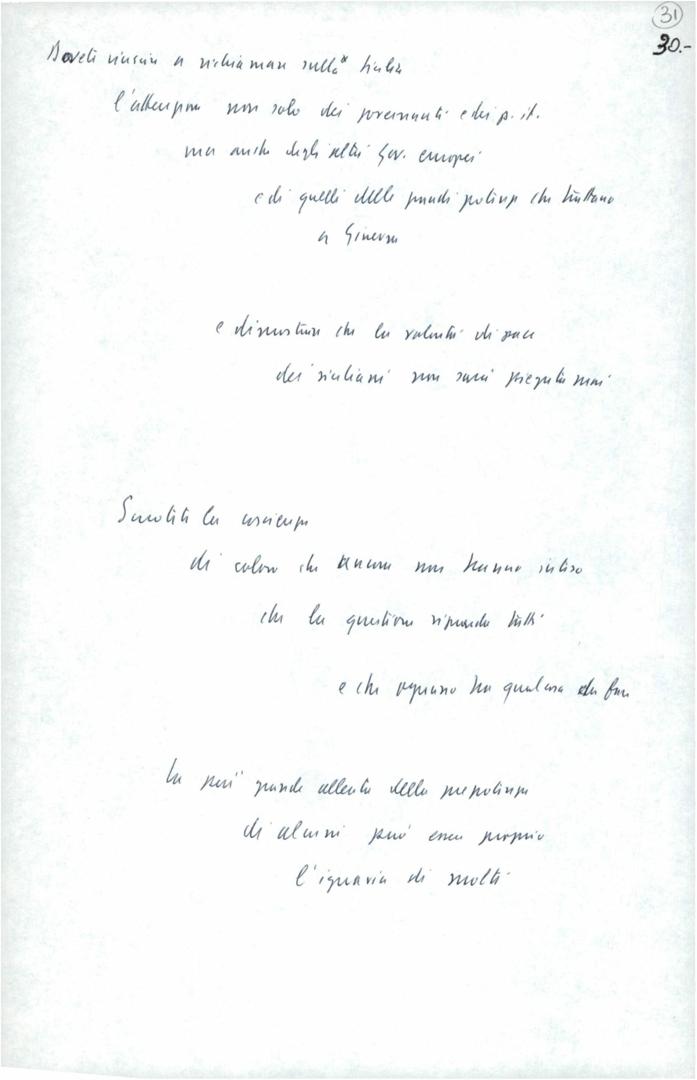 31
30.-
Dovete riuscire a richiamare sulla Sicilia
l'attenzione non solo dei governanti e dei p. it.
ma anche degli altri Gov. europei
e di quelli delle grandi potenze che trattano
a Ginevra
e dimostrare che la volontà di pace
dei siciliani non sarà piegata mai
Scuotete la coscienza
di coloro che ancora non hanno inteso
che la questione riguarda tutti
e che ognuno ha qualcosa da fare
La più grande alleata della prepotenza
di alcuni può essere proprio
l'ignavia di molti